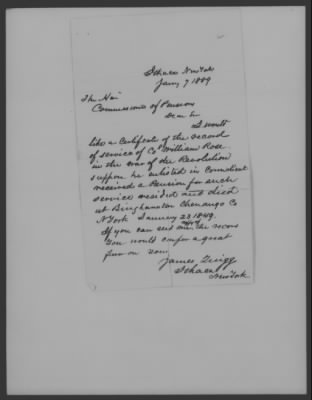 Ithaca New York
Jany 7 1889
The Hon
Commissioner of Pensions
Dear Sir
I would
like a Certificate of the record
of service of Co William Rose
in the war of the Revolution
suppose he enlisted in Connecticut
received a Pension for such
service resided and died
at Binghamton Chenango Co
N York January 23 1849.
If you can send me the record
You would confer a great
favor on Your
James Quigg
Ithaca
New York